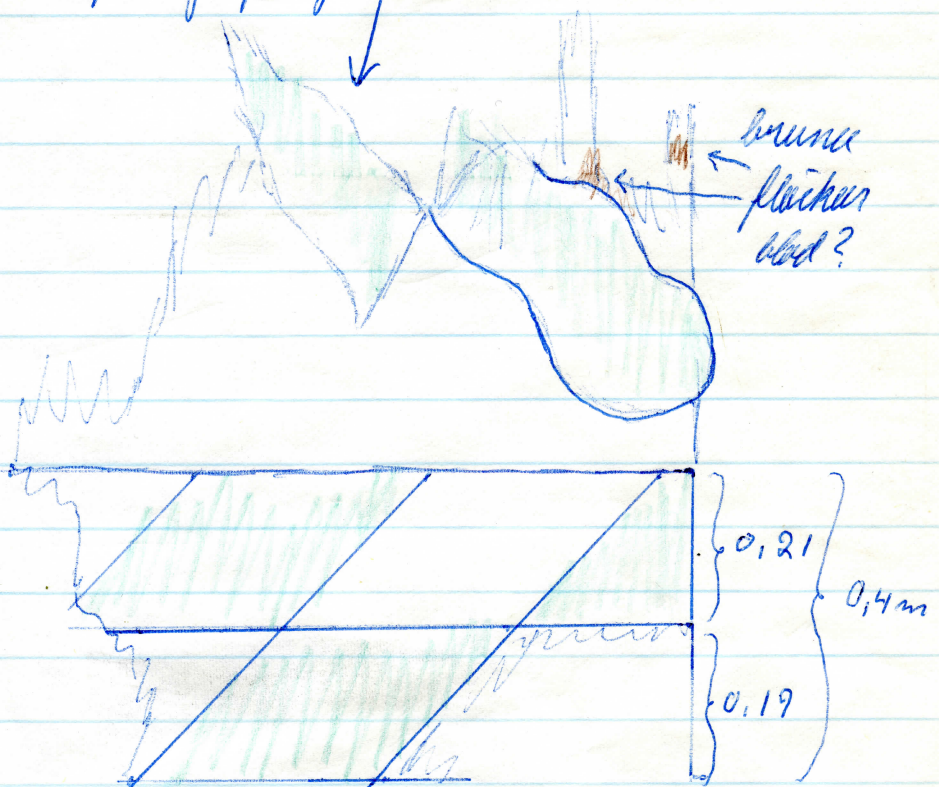 bruna
fläckar
blod?
0,21
0,4 m
0,19